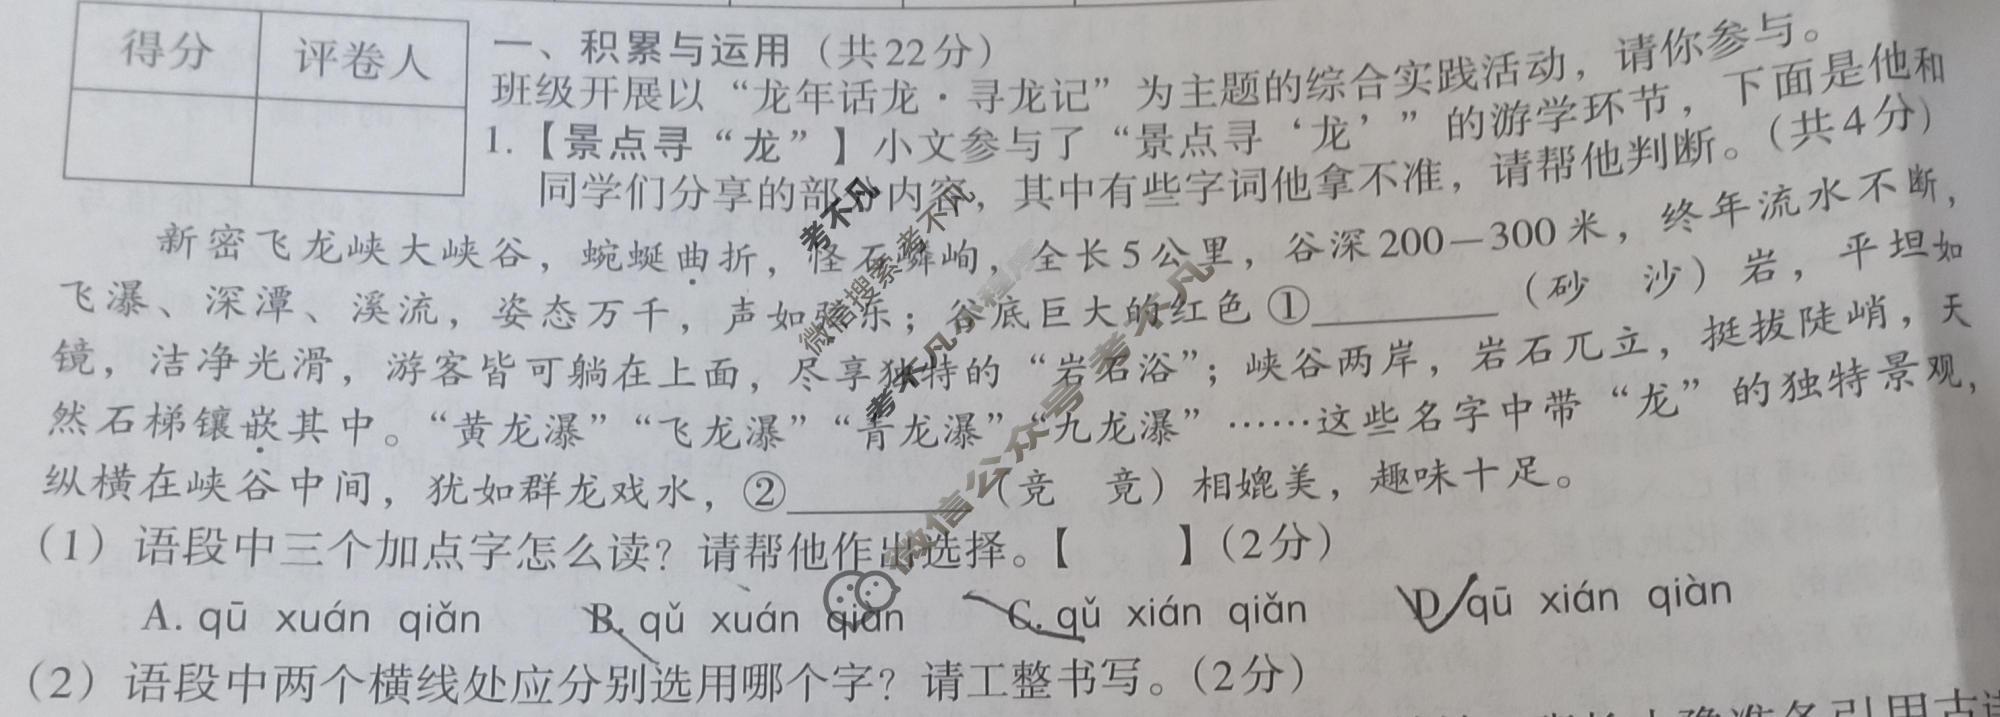 得分 评卷人
一、积累与运用（共22分）
班级开展以“龙年话龙·寻龙记”为主题的综合实践活动，请你参与。
1.【景点寻“龙”】小文参与了“景点寻‘龙’”的游学环节，下面是他和
同学们分享的部分内容，其中有些字词他拿不准，请帮他判断。（共4分）
新密飞龙峡大峡谷，蜿蜒曲折，怪石嶙峋，全长5公里，谷深200—300米，终年流水不断，
飞瀑、深潭、溪流，姿态万千，声如弦乐；谷底巨大的红色①________（砂 沙）岩，平坦如
镜，洁净光滑，游客皆可躺在上面，尽享独特的“岩石浴”；峡谷两岸，岩石兀立，挺拔陡峭，天
然石梯镶嵌其中。“黄龙瀑”“飞龙瀑”“青龙瀑”“九龙瀑”……这些名字中带“龙”的独特景观，
纵横在峡谷中间，犹如群龙戏水，②________（竞 竟）相媲美，趣味十足。
（1）语段中三个加点字怎么读？请帮他作出选择。【 】（2分）
A. qū xuán qiǎn B. qǔ xuán qiàn C. qǔ xián qiǎn D. qū xián qiàn
（2）语段中两个横线处应分别选用哪个字？请工整书写。（2分）
考不凡
微信搜索考不凡
考不凡小程序
微信公众号考不凡